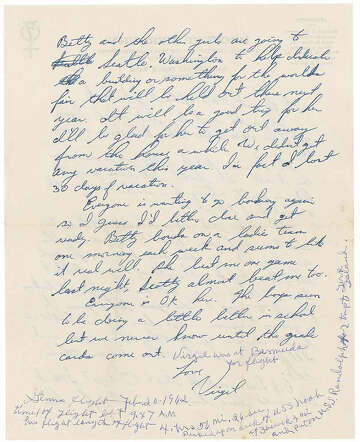 Betty and the other girls are going to
Seattle, Washington to help dedicate
a building or something for the worlds
fair that will be held out there next
year. It will be a good trip for her
I'll be glad for her to get out away
from the house a while. We didn't get
any vacation this year. In fact I lost
30 days of vacation.
Everyone is wanting to go bowling again
so I guess I'd better close and get
ready. Betty bowls on a ladies team
one morning each week and seems to like
it real well. She beat me one game
last night. Scotty almost beat me too.
Everyone is OK here. The boys seem
to be doing a little better in school
but we never know until the grade
cards come out. Virgil was at Bermuda
for flight
Love,
Virgil
Glenns flight Feb. 20-1962
time of flight left 9:47 A.M.
his flight length of flight 4 hrs 56 min. 26 sec.
USS Noah
Randolph